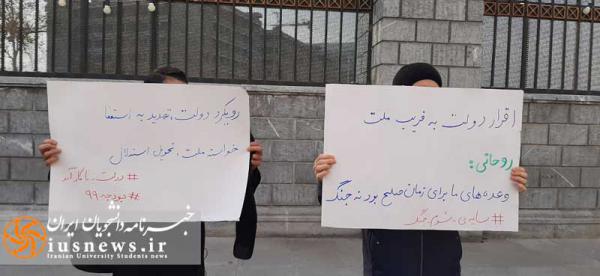 اقرار دولت به فریب ملت
روحانی:
وعده‌های ما برای زمان صلح بود نه جنگ
#سایه_ی_شوم_جنگ
رویکرد دولت، تهدید به استعفا
خواست ملت،
#دولت_ناکارآمد
#بودجه_۹۹
خبرنامه دانشجویان ایران
iusnews.ir
Iranian University Students news